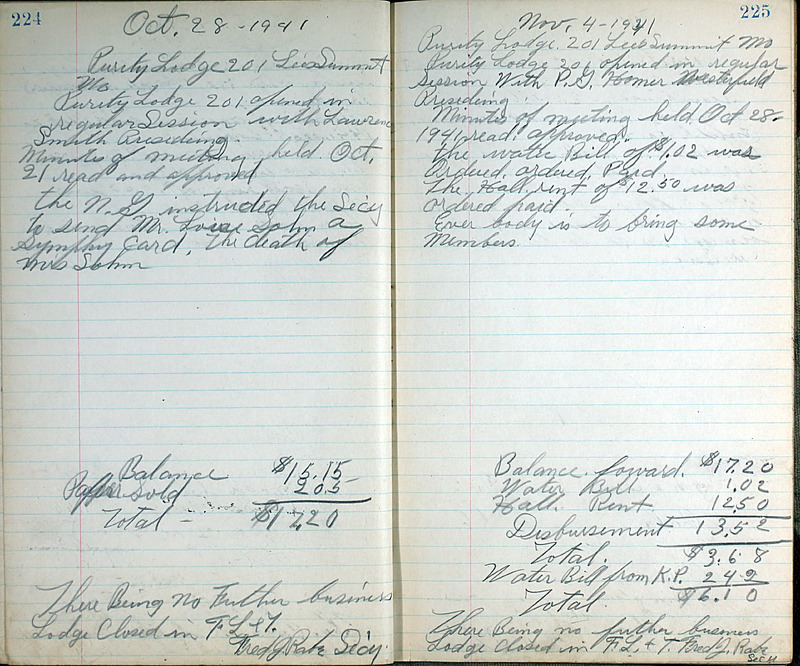 224
Oct. 28-1941
Purity Lodge 201 Lees Summit
Mo
Purity Lodge 201 opened in
regular Session with Lawrence
Smith Presideing.
Minutes of meeting held Oct.
21 read and approved
the N.G. instructed the Secy
to send Mr. Louie Sohm a
Symphy Card, the death of
mrs Sohm
Balance $15.15
Paper Sold 2.05
Total - $17.20
There Being no Futher business
Lodge Closed in F L & T.
Fred J Rabe Secy.
225
Nov. 4-1941
Purity Lodge. 201 Lees Summit Mo
Purity Lodge 201 opened in regular
Session With P.G. Homer Westerfield
Presideing.
Minutes of meeting held Oct 28-
1941 read, approved.
The water Bill of $1.02 was
Ordered, ordered, Paid
The Hall rent of $12.50 was
ordered paid.
Ever body is to bring some
Members.
Balance. foward. $17.20
Water Bill 1.02
Hall. Rent 12.50
Disbursement 13.52
Total. $3.68
Water Bill from K.P. 2.42
Total. $6.10
There Being no futher business
Lodge Closed in F.L. + T. Fred J. Rabe
Secy